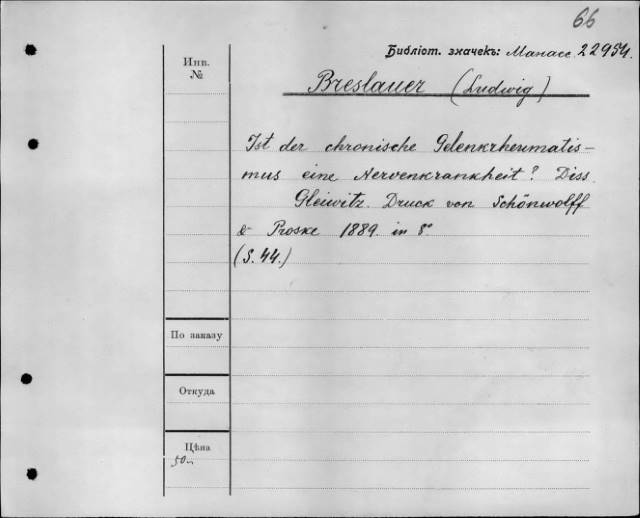 66
Библіот. значекъ: Манасс. 22954.
Инв.
№
Breslauer (Ludwig)
Ist der chronische Gelenkrheumatis-
mus eine Nervenkrankheit? Diss.
Gleiwitz. Druck von Schönwolff
& Proske 1889. in 8°
(S. 44.)
По заказу
Откуда
Цѣна
50